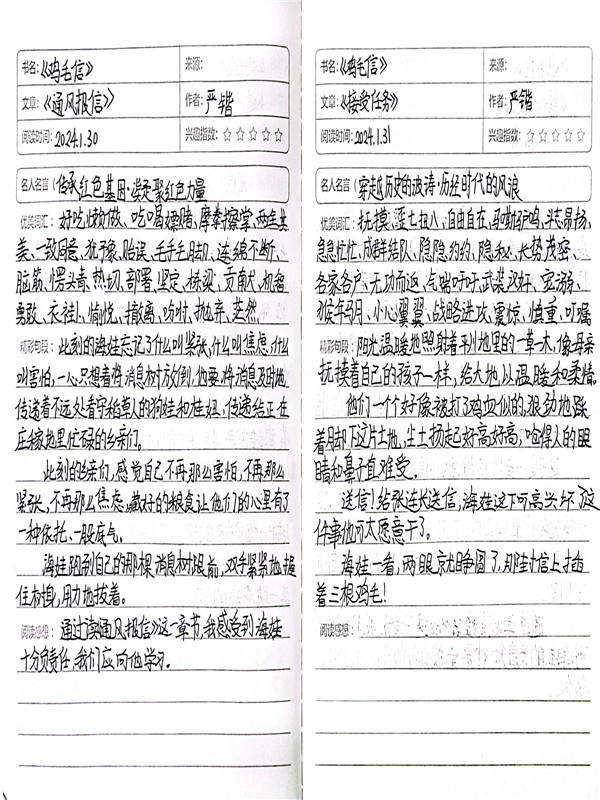 书名:《鸡毛信》
来源:
文章:《通风报信》
作者:严锴
阅读时间:2024.1.30
兴趣指数:☆☆☆☆☆
名人名言(传承红色基因·凝聚红色力量
优美词汇:好吃懒做、吃喝嫖赌、摩拳擦掌、两全其
美、一致同意、犹豫、贻误、毛手毛脚、连绵不断、
脑筋、愣头青、热切、部署、坚定、桥梁、贡献、机智
勇敢、衣袖、愉悦、撤离、吩咐、抛弃、茫然
精彩句段:此刻的海娃忘记了什么叫紧张,什么叫焦虑,什么
叫害怕,一心只想着将消息树放倒,他要将消息及时地
传递着不远处看守稻草人的狗娃和桂妞,传递给正在
庄稼地里忙碌的乡亲们。
此刻的乡亲们,感觉自己不再那么害怕,不再那么
紧张,不再那么焦虑,藏好的粮食让他们的心里有了
一种依托、一股底气。
海娃跑到自己的那棵消息树跟前,双手紧紧地握
住树身,用力地拔着。
阅读感想:通过读《通风报信》这一章节,我感受到海娃
十分负责任,我们应向他学习.
书名:《鸡毛信》
来源:
文章:《接受任务》
作者:严锴
阅读时间:2024.1.31
兴趣指数:☆☆☆☆☆
名人名言(穿越历史的波涛·历经时代的风浪
优美词汇:抚摸、歪七扭八、自由自在、马嘶驴鸣、头志昂扬、
急急忙忙、成群结队、隐隐约约、隐秘、长势茂密、
各家各户、无功而返、气喘吁吁、武装汉奸、宽溺、
猴年马月、小心翼翼、战略进攻、震惊、慎重、叮嘱
精彩句段:阳光温暖地照射着平川地里的一草一木,像母亲
抚摸着自己的孩子一样,给大地以温暖和柔情。
他们一个个好像被打了鸡血似的,狠劲地跺
着脚下这片土地,尘土扬起好高好高,呛得人的眼
睛和鼻子直难受.
送信!给张连长送信,海娃这下可高兴坏了,这
件事他可太愿意干了。
海娃一看,两眼就睁圆了,那封信上插
着三根鸡毛!
阅读感想: